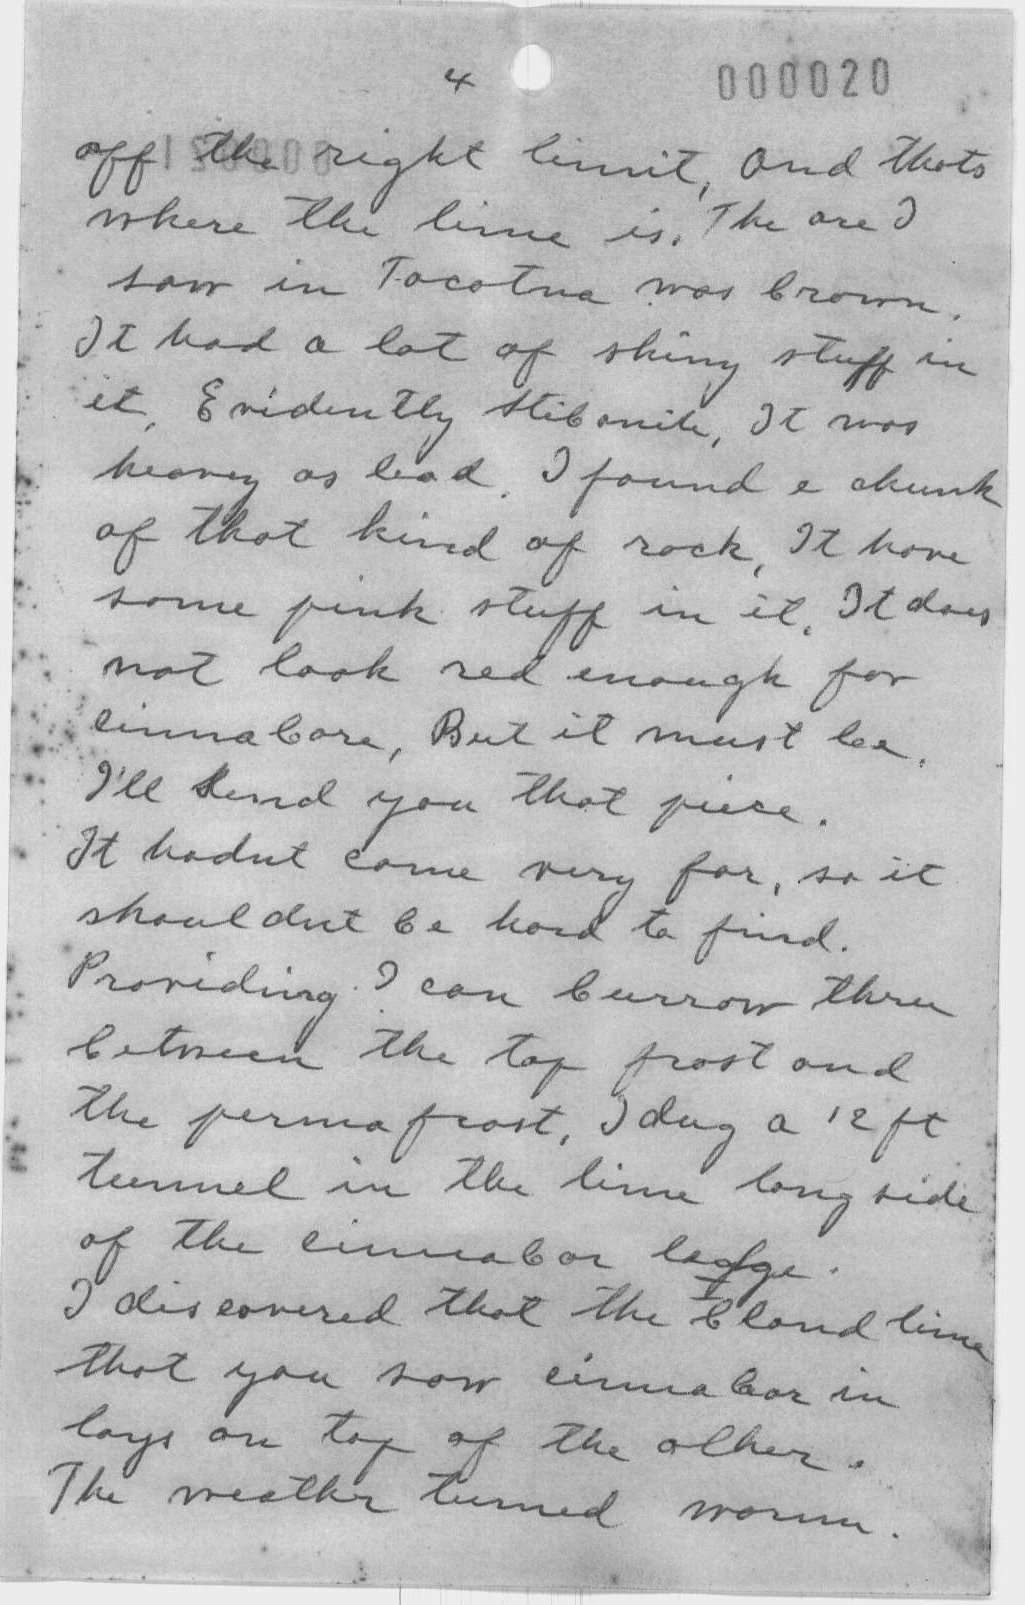 4
000020
off the right limit, And thats
where the lime is. The ore I
saw in Tacotna was brown.
It had a lot of shiny stuff in
it, Evidently Stibonite, It was
heavey as lead. I found a chunk
of that kind of rock, It have
some pink stuff in it. It does
not look red enough for
cinnabare, But it must be.
I'll send you that piece.
It hadnt come very far, so it
shouldnt be hard to find.
Providing I can burrow thru
between the top frost and
the permafrost, I dug a 12 ft
tunnel in the lime long side
of the cinnabar ledge.
I discovered that the bland lime
that you saw cinnabar in
lays on top of the other.
The weather turned warm.